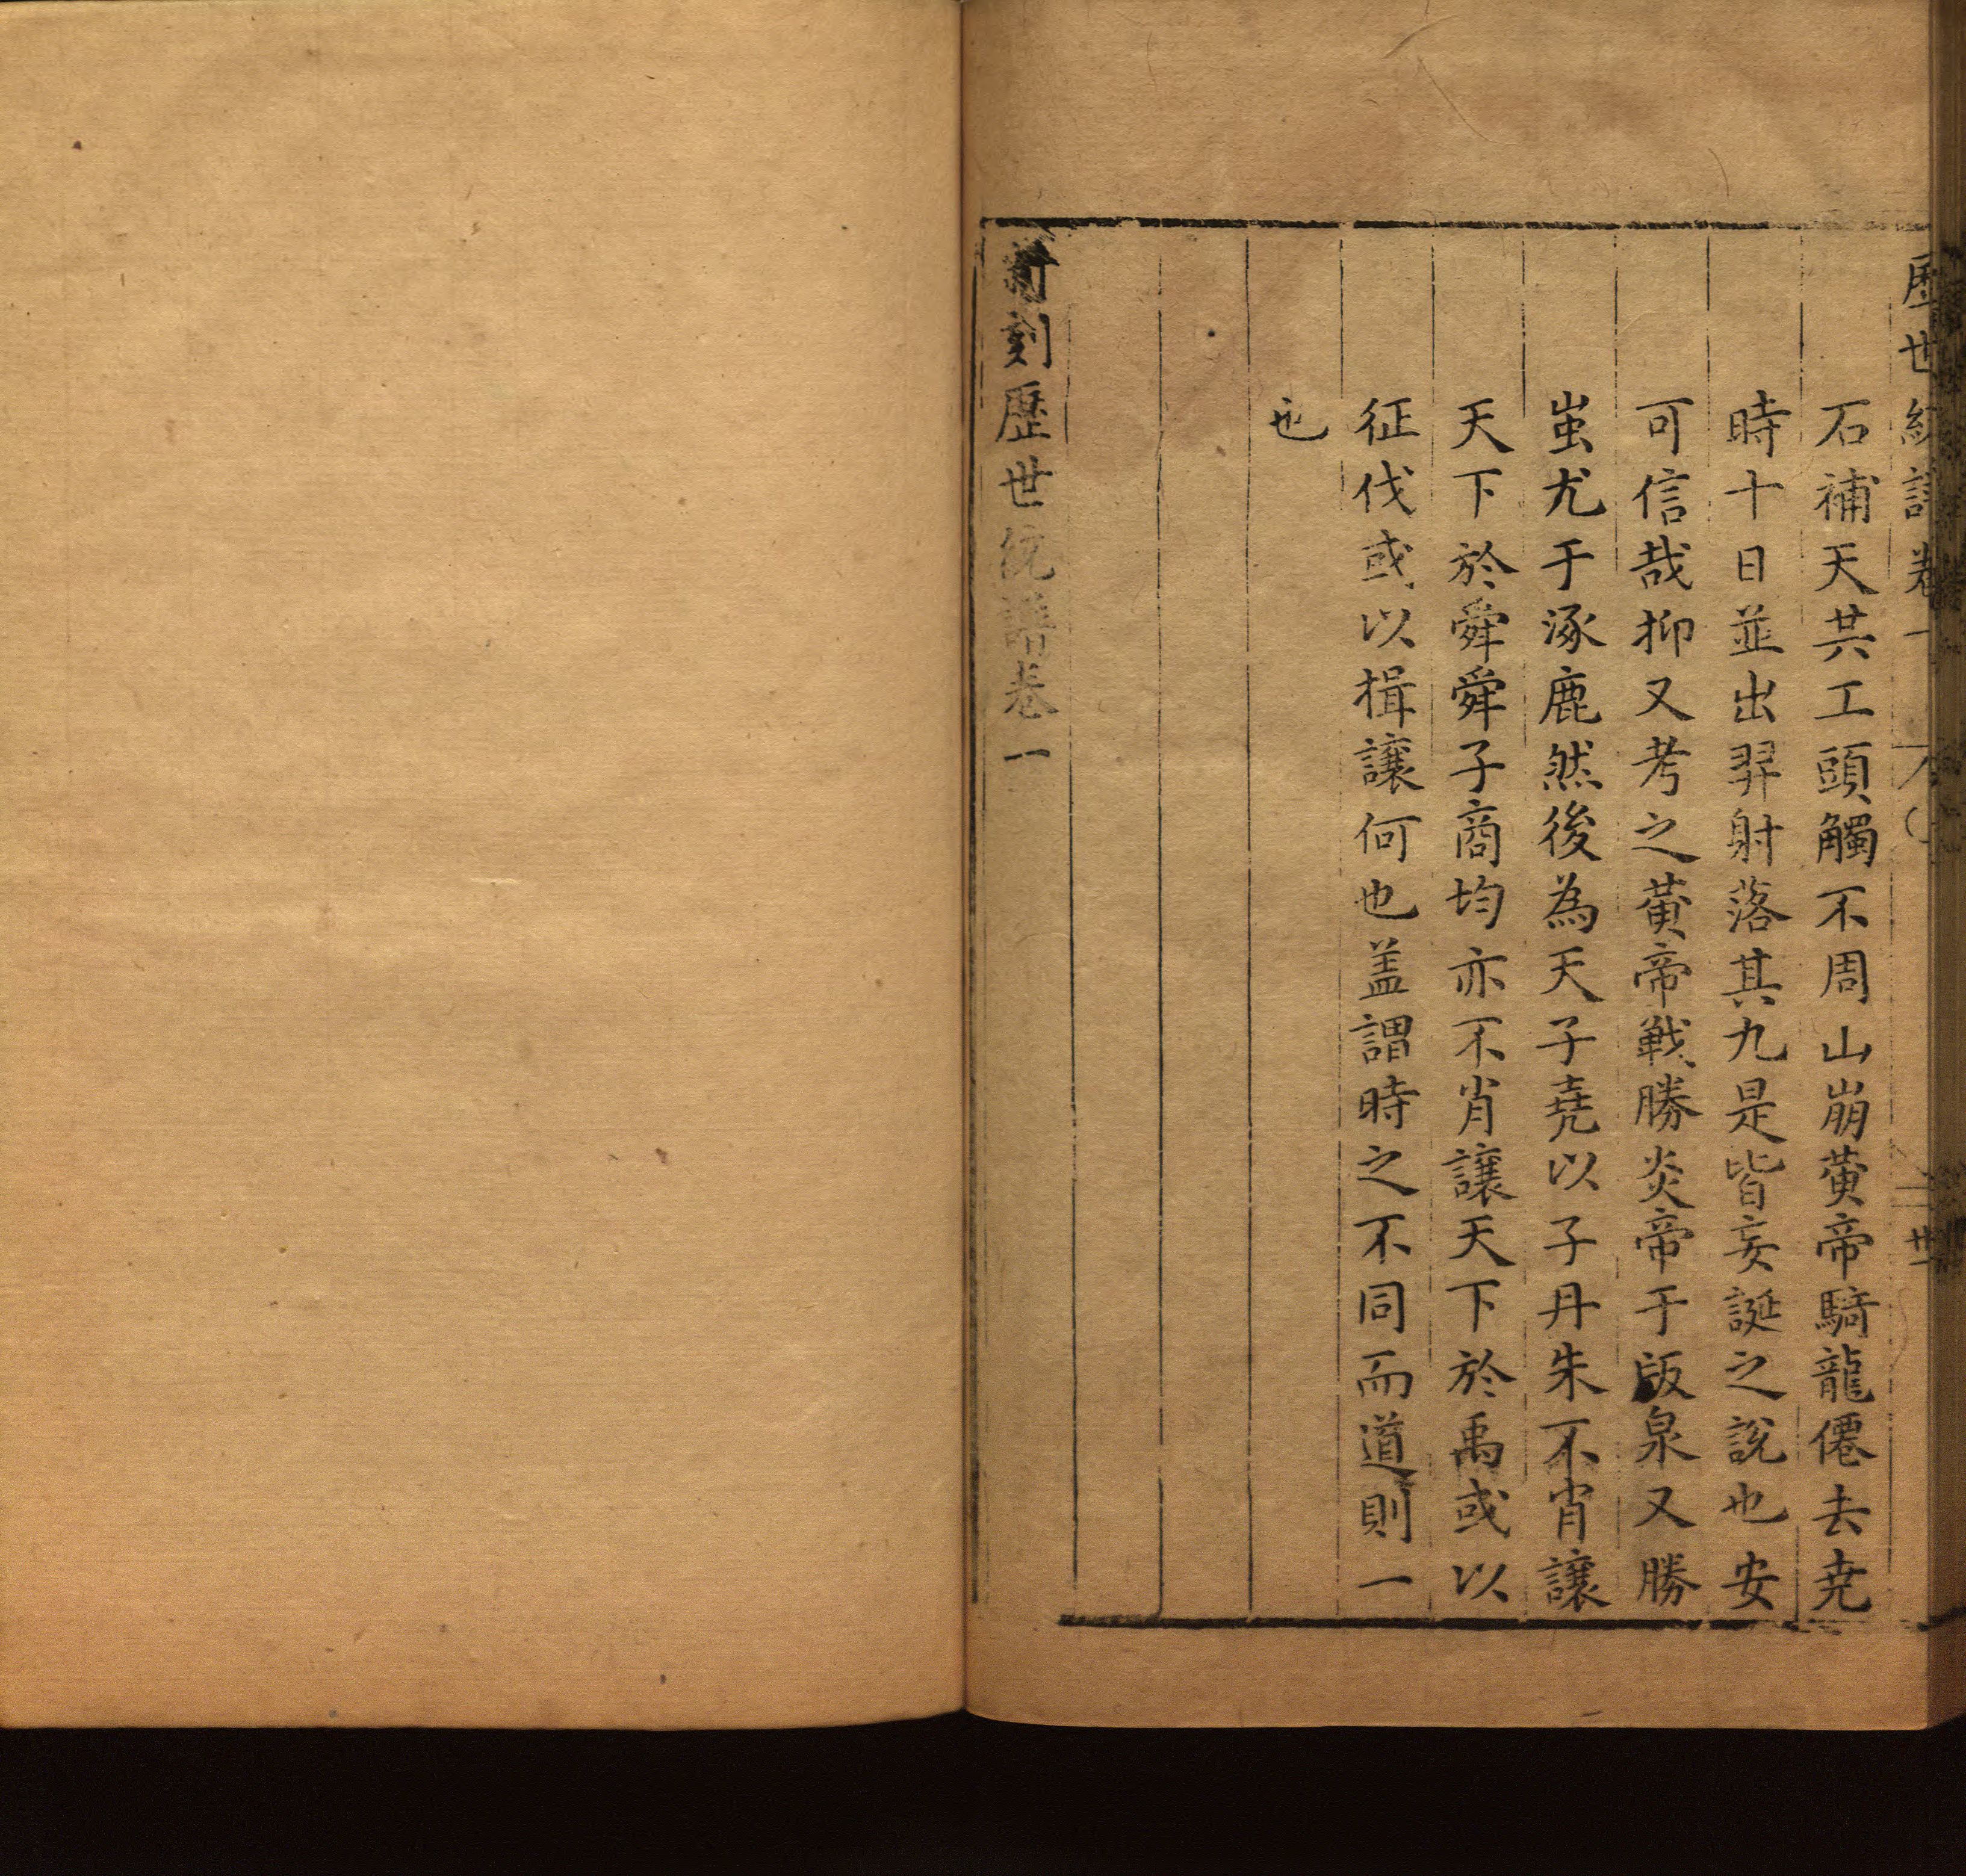 歷世統譜卷一
石補天共工頭觸不周山崩黃帝騎龍僊去堯
時十日並出羿射落其九是皆妄誕之說也安
可信哉抑又考之黃帝戰勝炎帝于阪泉又勝
蚩尤于涿鹿然後為天子堯以子丹朱不肖讓
天下於舜舜子商均亦不肖讓天下於禹或以
征伐或以揖讓何也盖謂時之不同而道則一
也
新刻歷世統譜卷一